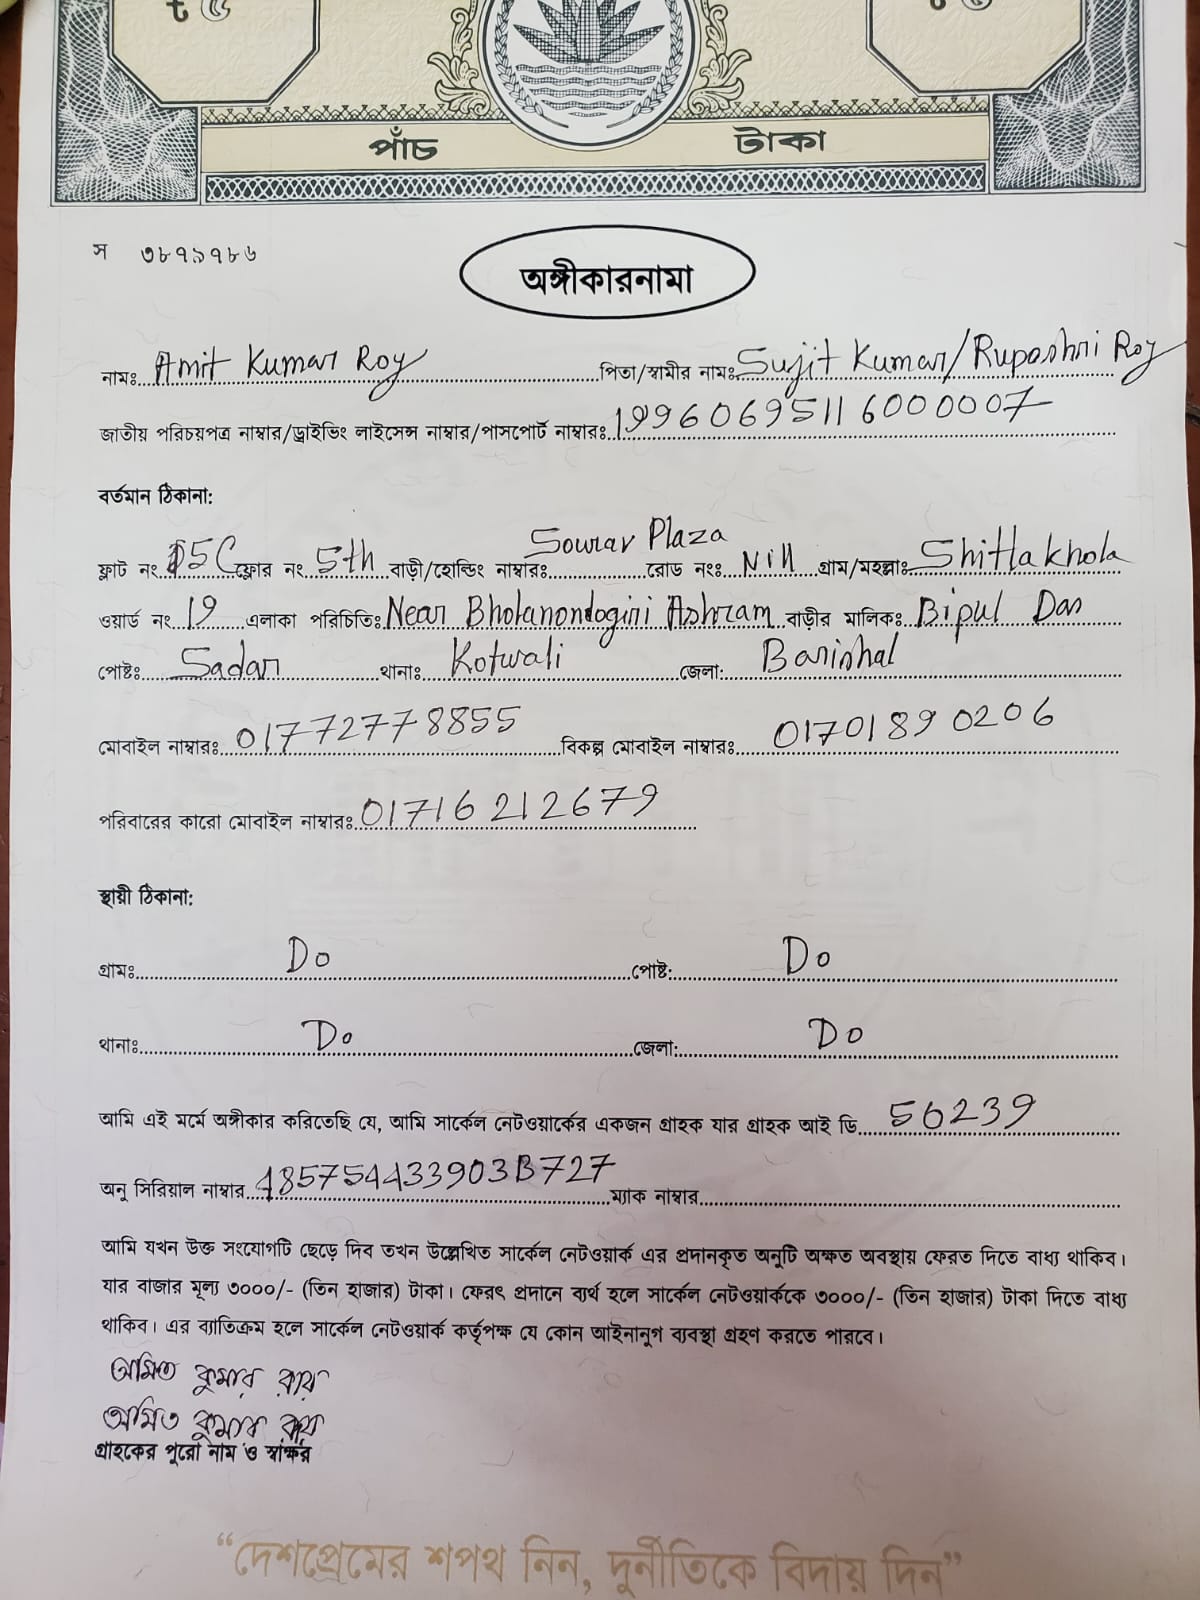 ৳ ৫ ৳ ৫
পাঁচ টাকা
স ৩৮৭৯৭৮৬
অঙ্গীকারনামা
নামঃ Amit Kumar Roy পিতা/স্বামীর নামঃ Sujit Kumar/Rupashri Roy
জাতীয় পরিচয়পত্র নাম্বার/ড্রাইভিং লাইসেন্স নাম্বার/পাসপোর্ট নাম্বারঃ 19960695116000007
বর্তমান ঠিকানা:
ফ্লাট নং 5C ফ্লোর নং 5th বাড়ী/হোল্ডিং নাম্বারঃ Sourav Plaza রোড নংঃ Nill গ্রাম/মহল্লাঃ Shitlakhola
ওয়ার্ড নং 19 এলাকা পরিচিতিঃ Near Bholanondogiri Ashram বাড়ীর মালিকঃ Bipul Das
পোষ্টঃ Sadar থানাঃ Kotwali জেলা: Barishal
মোবাইল নাম্বারঃ 01772778855 বিকল্প মোবাইল নাম্বারঃ 01701890206
পরিবারের কারো মোবাইল নাম্বারঃ 01716212679
স্থায়ী ঠিকানা:
গ্রামঃ Do পোষ্ট: Do
থানাঃ Do জেলা: Do
আমি এই মর্মে অঙ্গীকার করিতেছি যে, আমি সার্কেল নেটওয়ার্কের একজন গ্রাহক যার গ্রাহক আই ডি 56239
অনু সিরিয়াল নাম্বার 485754433903B727 ম্যাক নাম্বার
আমি যখন উক্ত সংযোগটি ছেড়ে দিব তখন উল্লেখিত সার্কেল নেটওয়ার্ক এর প্রদানকৃত অনুটি অক্ষত অবস্থায় ফেরত দিতে বাধ্য থাকিব।
যার বাজার মূল্য ৩০০০/- (তিন হাজার) টাকা। ফেরৎ প্রদানে ব্যর্থ হলে সার্কেল নেটওয়ার্ককে ৩০০০/- (তিন হাজার) টাকা দিতে বাধ্য
থাকিব। এর ব্যাতিক্রম হলে সার্কেল নেটওয়ার্ক কর্তৃপক্ষ যে কোন আইনানুগ ব্যবস্থা গ্রহণ করতে পারবে।
অমিত কুমার রায়
অমিত কুমার রায়
গ্রাহকের পুরো নাম ও স্বাক্ষর
“দেশপ্রেমের শপথ নিন, দুর্নীতিকে বিদায় দিন”